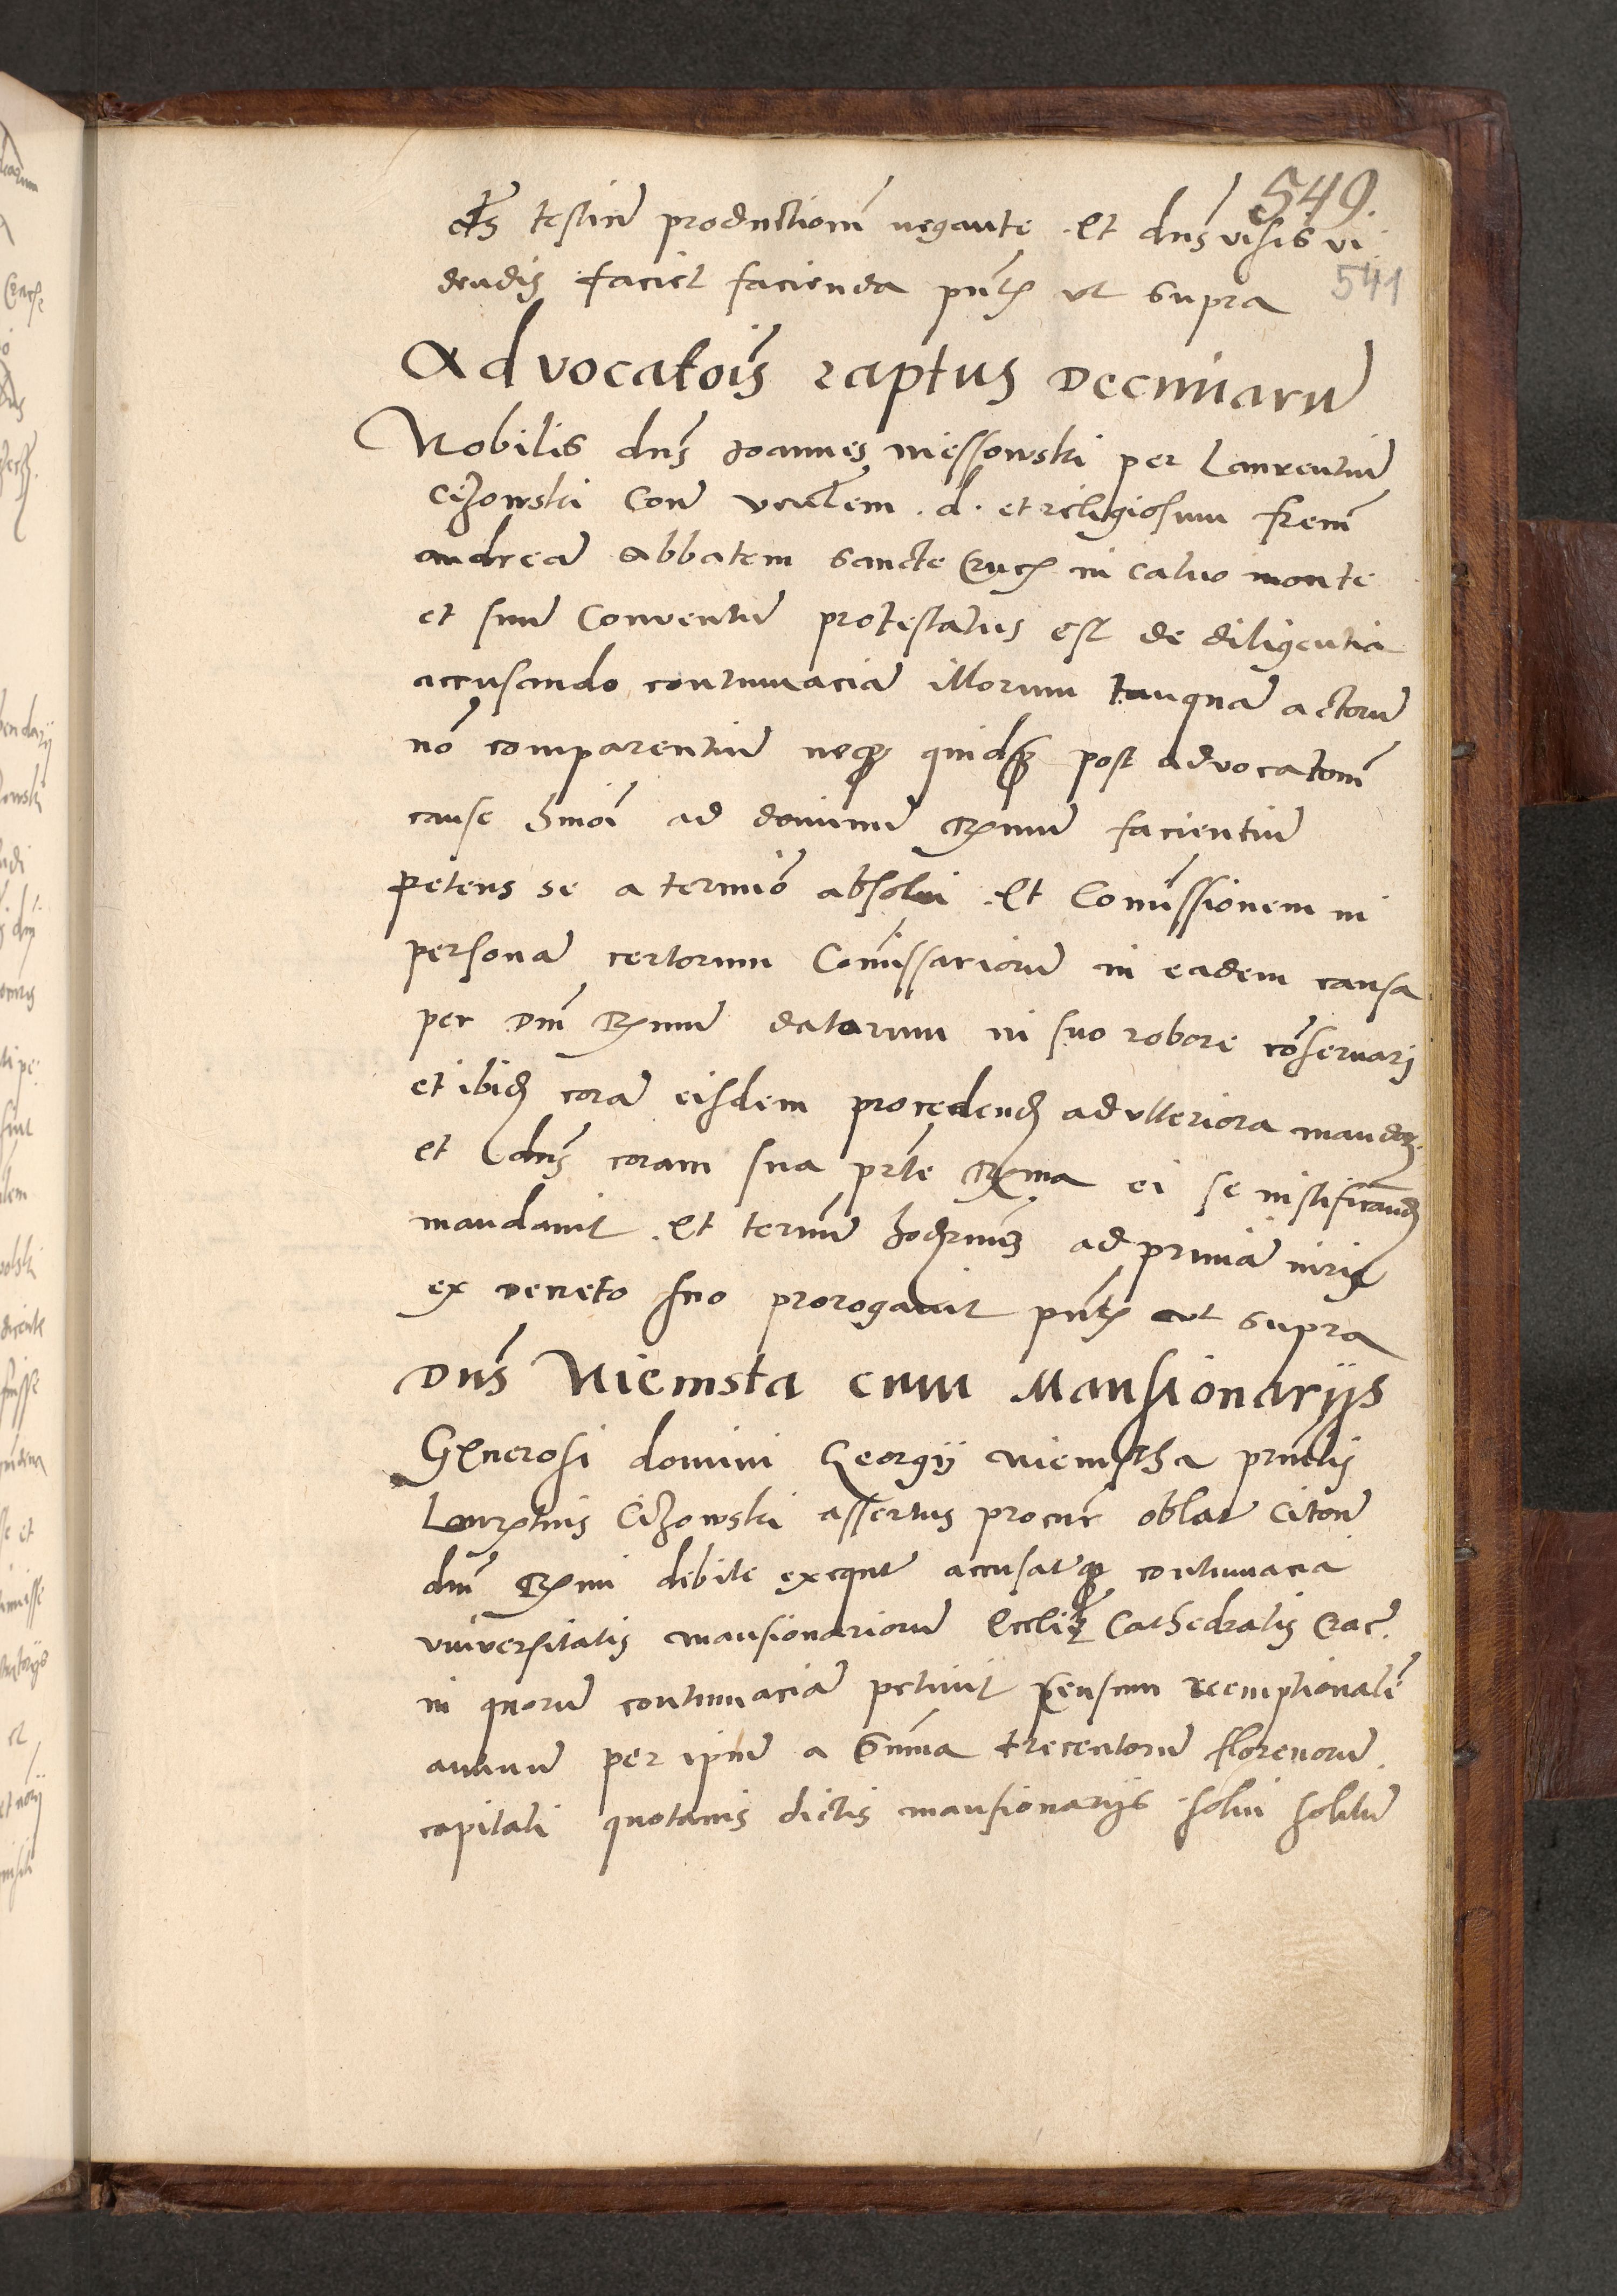 549.
541
testiū productionē negante Et dns visis vi
dendis faciet facienda pntꝭ ut supra
Advocatōis raptus Decimarū
Nobilis dns Joannes niessowski per Laurentiū
Cizowski Con venlem d. et religiosum frem
andreā Abbatem Sancte Crucꝭ in Calvo monte
et suū Conventū protestatus est de diligentia
accusando contumaciā illorum tanquā actorū
nō comparentiū neqꝫ quidqꝫ post advocatonē
cause hmoi ad dominū Rꝫmū facientiū
petens se a terminō absolvi Et Comissionem in
personā certorum Comissariorū in eadem causa
per Dnm Rꝫmum datarum in suo robore cōservarj
et ibidꝫ corā eisdem procedendꝫ ad ulteriora mandarꝫ
et dns coram sua prte Rꝫma ei se iustificandꝫ
mandavit Et terminū hodiernū ad primā iuris
ex decreto suo prorogavit pntꝭ ut supra
Dns Niemsta cum Mansionarijs
Generosi domini Georgij niemstha prncipalis
Laurentius Cizowski assertus procur oblatꝫ Citonē
dni Rꝫmi debite exequtꝫ accusataqꝫ contumacia
universitatis mansionariorū Ecclie Cathedralis Crac.
in quorū contumaciā petivit Censum reemptionalē
annuū per ipm a Suma trecentorū florenorū
capitali quotanis dictis mansionarijs solvi solitū